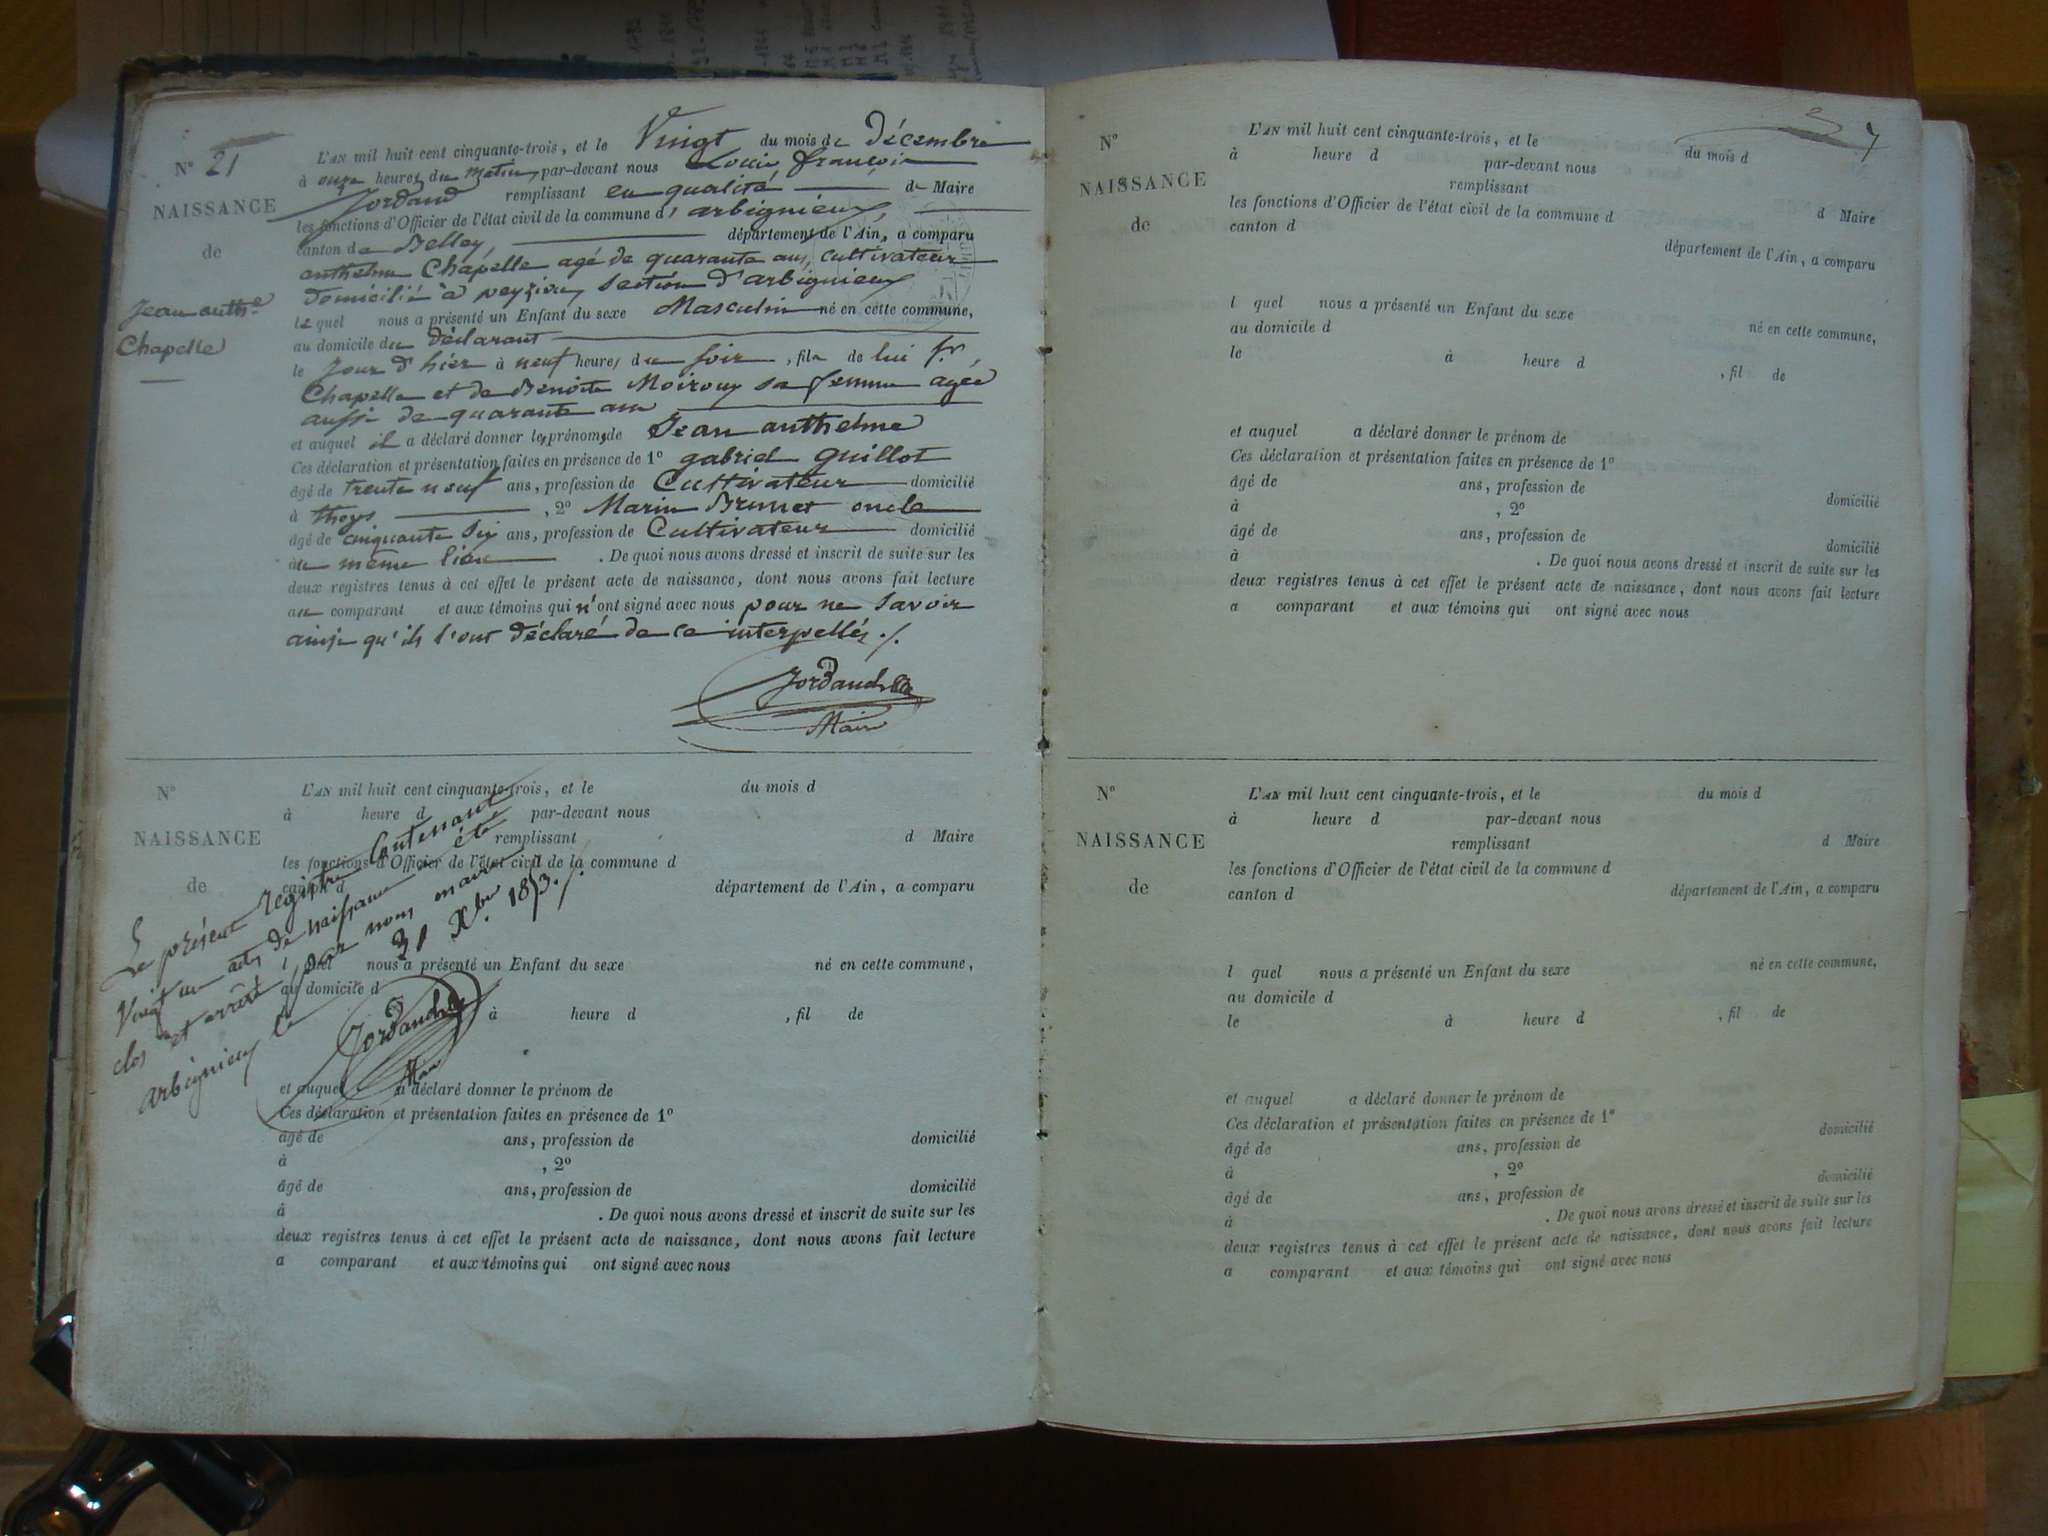 N° 21
NAISSANCE
de
Jean anth.e
Chapelle
L'AN mil huit cent cinquante-trois, et le Vingt du mois de Décembre
à onze heures du matin, par-devant nous Louis françois
Jordand remplissant en qualité de Maire
les fonctions d'Officier de l'état civil de la commune d'arbignieux,
canton de Belley, département de l'Ain, a comparu
anthelme Chapelle agé de quarante ans, cultivateur
domicilié à peyzieu, section d'arbignieux
lequel nous a présenté un Enfant du sexe Masculin né en cette commune,
au domicile du déclarant
le jour d'hier à neuf heures du soir, fils de lui
Chapelle et de Benoite Moiroux sa femme agée
aussi de quarante ans
et auquel il a déclaré donner les prénoms de Jean anthelme
Ces déclaration et présentation faites en présence de 1° gabriel guillot
âgé de trente neuf ans, profession de Cultivateur domicilié
à thoys, 2° Marin Brunet oncle
âgé de cinquante six ans, profession de Cultivateur domicilié
au même lieu. De quoi nous avons dressé et inscrit de suite sur les
deux registres tenus à cet effet le présent acte de naissance, dont nous avons fait lecture
au comparant et aux témoins qui n'ont signé avec nous pour ne savoir
ainsi qu'ils l'ont déclaré de ce interpellés ./.
Jordand
Maire
N°
NAISSANCE
de
L'AN mil huit cent cinquante-trois, et le du mois d
à heure d par-devant nous
remplissant d Maire
les fonctions d'Officier de l'état civil de la commune d
canton d département de l'Ain, a comparu
l quel nous a présenté un Enfant du sexe né en cette commune,
au domicile d
à heure d , fil de
et auquel a déclaré donner le prénom de
Ces déclaration et présentation faites en présence de 1°
âgé de ans, profession de domicilié
à , 2°
âgé de ans, profession de domicilié
à . De quoi nous avons dressé et inscrit de suite sur les
deux registres tenus à cet effet le présent acte de naissance, dont nous avons fait lecture
a comparant et aux témoins qui ont signé avec nous
Le présent registre Contenant
Vingt un actes de naissance a été
clos et arrêté par nous maire
arbignieux le 31 Xbre 1853 ./.
Jordand
Maire
7
N°
NAISSANCE
de
L'AN mil huit cent cinquante-trois, et le du mois d
à heure d par-devant nous
remplissant d Maire
les fonctions d'Officier de l'état civil de la commune d
canton d département de l'Ain, a comparu
l quel nous a présenté un Enfant du sexe né en cette commune,
au domicile d
le à heure d , fil de
et auquel a déclaré donner le prénom de
Ces déclaration et présentation faites en présence de 1°
âgé de ans, profession de domicilié
à , 2°
âgé de ans, profession de domicilié
à . De quoi nous avons dressé et inscrit de suite sur les
deux registres tenus à cet effet le présent acte de naissance, dont nous avons fait lecture
a comparant et aux témoins qui ont signé avec nous
N°
NAISSANCE
de
L'AN mil huit cent cinquante-trois, et le du mois d
à heure d par-devant nous
remplissant d Maire
les fonctions d'Officier de l'état civil de la commune d
canton d département de l'Ain, a comparu
l quel nous a présenté un Enfant du sexe né en cette commune,
au domicile d
le à heure d , fil de
et auquel a déclaré donner le prénom de
Ces déclaration et présentation faites en présence de 1°
âgé de ans, profession de domicilié
à , 2°
âgé de ans, profession de domicilié
à . De quoi nous avons dressé et inscrit de suite sur les
deux registres tenus à cet effet le présent acte de naissance, dont nous avons fait lecture
a comparant et aux témoins qui ont signé avec nous